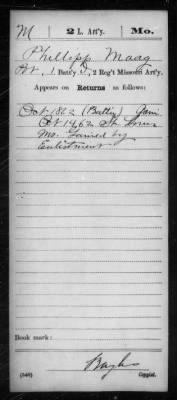 M 2 L. Art'y. Mo.
Phillipp Maag
Pvt, 1 Batt'y D, 2 Reg't Missouri Art'y.
Appears on Returns as follows:
Oct 1862 (Batty) Gain
Oct 19, 62 St. Louis
Mo. Gained by
Enlistment
Book mark:
(546) Copyist.